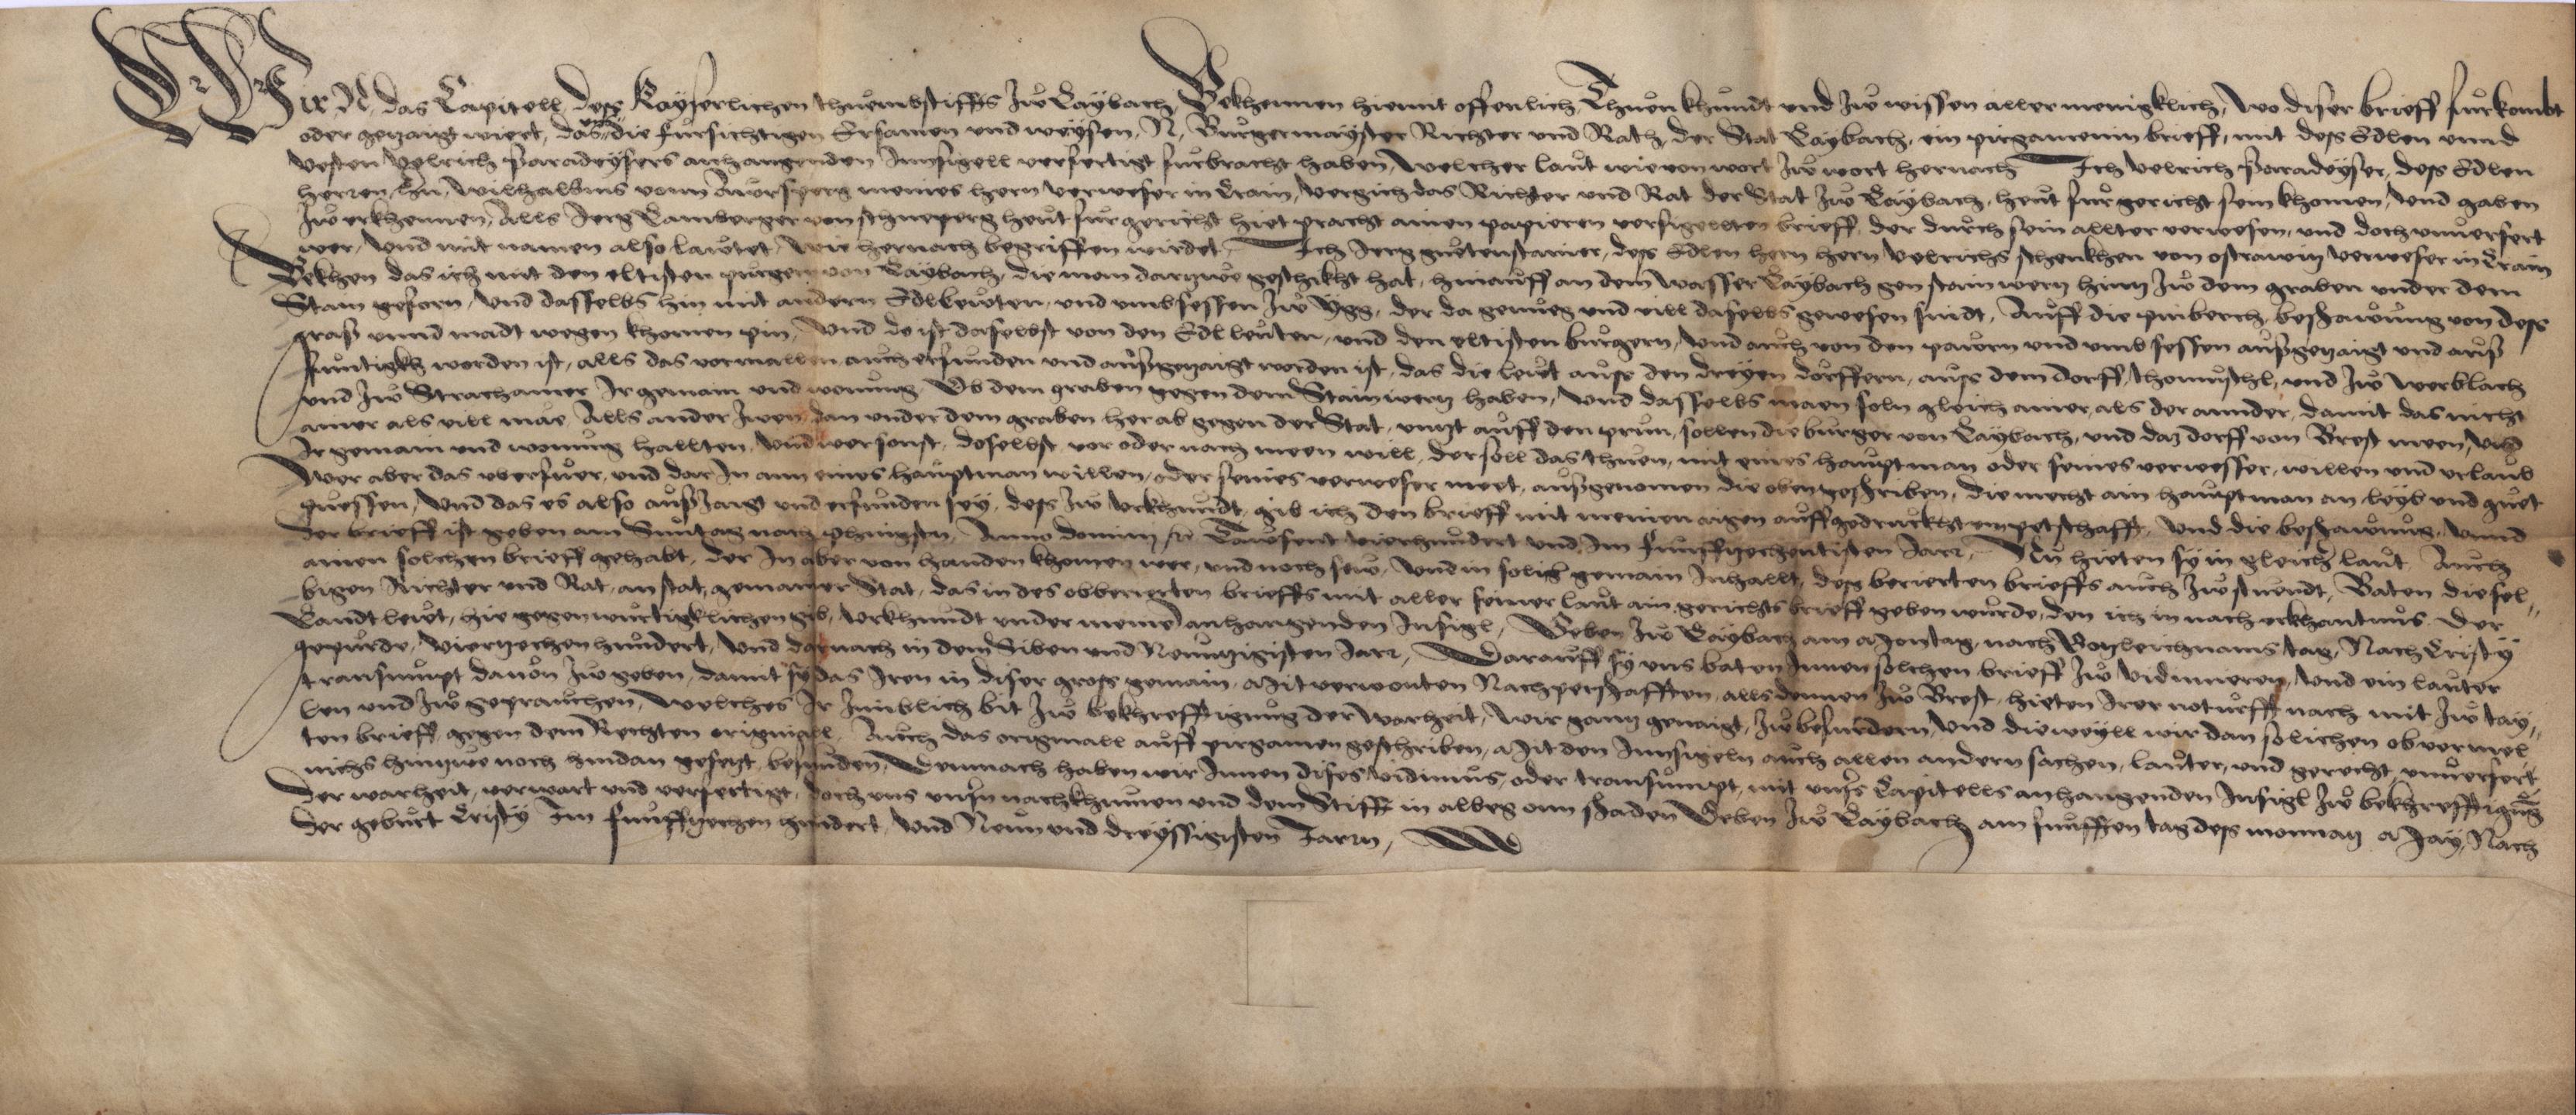 Wir N. das Capitell dess Kayserlichen thuembstiffts zw Laybach, Bekhennen hiemit offenlich, Thuen khundt und zw wissen aller menigklich, wo diser brieff furkombt
oder gezaig wiert, das die fursichtigen Ersamen und weysen, N, Burgermayster Richter und Rath, der Stat Laybach, ein pirgamenin brieff, mit dess Edlen unnd
vesten Ulrich Paradeysers anhangenden Innsigell verfertigt furbracht haben, welcher laut wie von wort zw wort hernach Ich Ulrich Paradeyser, dess Edlen
herren, hn, Wilhalbms vonn Aursperg meines hern verweser in Crain, vergich das Richter und Rat der Stat zw Laybach, heut fur gericht sein khomen, und gaben
zw erkhennen, Alls Jerg Lamberger von schneperg heut fur gericht hiet pracht ainen papieren versigelten brieff, der durch sein allter verwesen, und doch unverfert
wer, und mit namen also lautet, wie hernach begriffen wirdet, Ich Jerg guetenstainer, dess Edlen hern hern Ulrichs schenkhen von ostrawitz verweser in Crain
Bekhen das ich mit den eltisten purgern von Laybach, die man darzwe geschikht hat, hinauff an dem wasser Laybach gen stain wertz hintz zw dem graben under dem
Stain gefarn, und dasselbs hin mit andern Edlleuten, und umbsessen zw Ygg, der da genueg und vill daselbs gewesen sindt, Auff die piberch, beschawung von dess
grass unnd madt wegen khomen pin, Und do ist daselbst von den Edlleuten, und den eltisten burgern, und auch von den pawrn und umbsessen aussgezaigt und auss
funtigkh worden ist, alls das vormallen auch erfunden und aussgezaigt worden ist, das die leut auss den dreyen dorffern, auss dem dorff, thomuschl, und zw werblach
und zw Strachamer, Ir gemain und wonung Ob dem graben gegen dem Stain wertz haben, und dasselbs maen soln gleich ainer als der annder, damit das nicht
ainer als vill mae Alls ander zwen, dan under dem graben herab gegen der Stat, untzt auff den prun, sollen die burger von Laybach, und daz dorff von Brest meen, und
Ir gemain und wonung hallten, und wer sonst, doselbst vor oder nach meen will, der soll das thuen, mit eines hauptman oder seines verwesser, willen und urlaub
Wer aber das uberfuer, und dar In ann eines hauptman willen, oder seines verweser meet, aussgenomen die obengeschriben, die mecht ain hauptman an leyb und guet
puessen, Und das es also ausszaigt und erfunden sey, dess zw urkhundt, gib ich den brieff mit meinen aigen auffgedrucktem petschafft, und die beschawung, unnd
der brieff ist geben am Suntag nach phingsten, Anno domini Tausent vierhundert und im funffzechentisten Jarr, Nu hieten sy in gleich laut Auch
ainen solchen brieff gehabt, der In aber von handen khomen wer, und noch sew, und in solich gemain Inhallt, dess berierten brieffs auch zw stuendt, Baten diesel-
bigen Richter und Rat, anstat, gemainer Stat, das in des obberierten brieffs mit aller seiner laut ain gerichts brieff geben wurde, den ich in nach erkhantnus der
Landtleut, hie gegenwurtigklichen gib, urkhundt under meinem anhangenden Insigl, Geben zw Laybach am Montag, nach Gotzleichnams tag, Nach Cristy
gepurde, Vierzechenhundert, und darnach in dem Siben und Neuntzigisten Jarr, Darauff sy uns baten Innen solchen brieff zw vidimieren, und ein lauter
transsumpt davon zw geben, damit sy das Iren in diser gross gemain, Mit verwonten Nachperschafften, alls dennen zw Brest, hieten Irer noturfft nach mit zw tay-
len und zw geprauchen, welches Ir Innblich bit zw bekhrefftigung der warheit, wir gantz genaigt, zw befurdern, und dieweyll wir dan solichen obvermel-
ten brieff, gegen dem Rechten originall, Auch das originall auff pirgamen geschriben, Mit den Innsigeln auch allen andern sachen, lauter, und gerecht, unverfert
nichs hinzwe noch hindan gesetzt, befunden, Demnach haben wir Innen dises vidimus, oder transsumpt, mit unsers Capitells anhangenden Insigl zw bekhrefftigung
der warheit, verwart und verfertigt, doch uns unsern nachkhumen und dem Stifft in albeg onn schaden Geben zw Laybach am funfften tag dess monnatz May, Nach
der geburt Cristy Im funffzechen hundert, und Neun und dreyssigisten Jarrn,